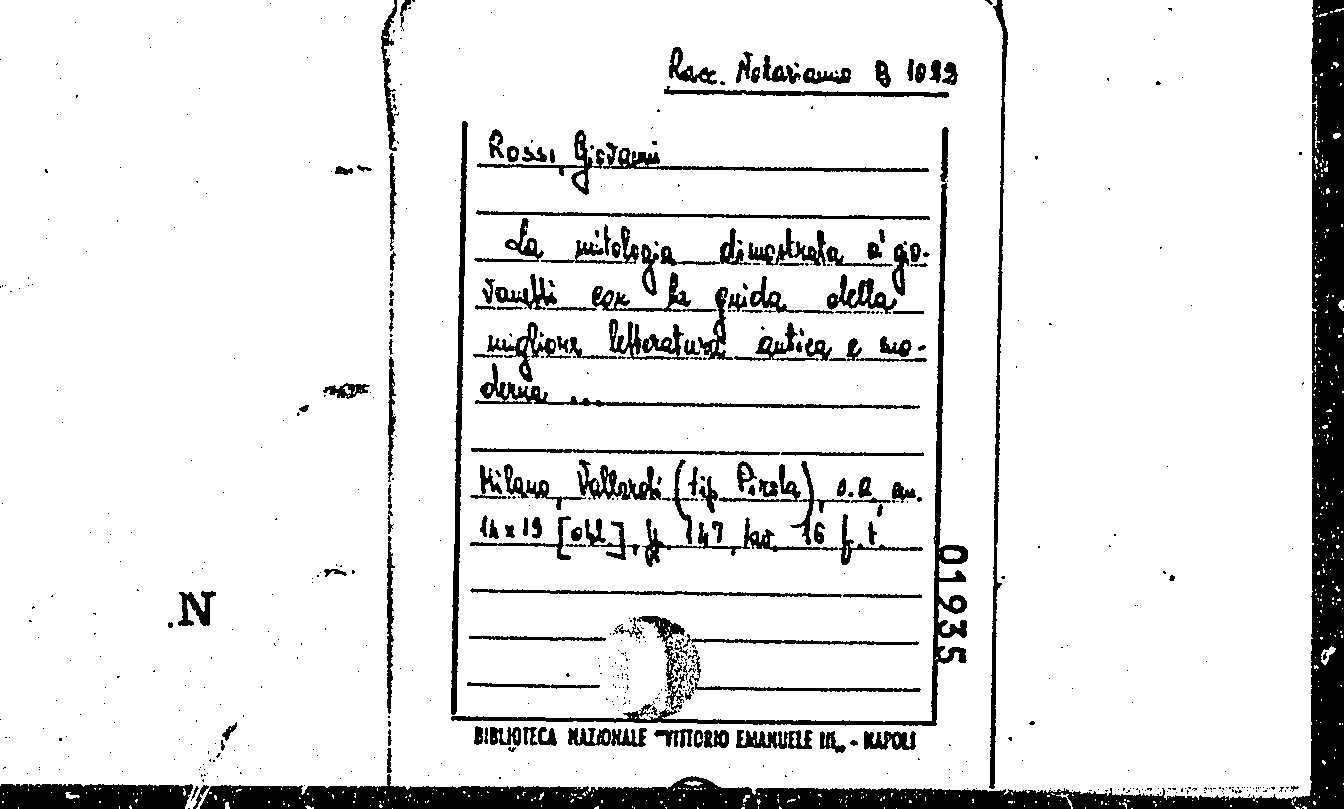 Racc. Notarianni B 1093
Rossi, Giovanni
La mitologia dimostrata a' gio-
vanetti con la guida della
migliore letteratura antica e mo-
derna ...
Milano, Vallardi (tip. Pirola), s.a., in
14 x 19 [obl], pp. 147, tav. 16 f.t.
01235
N.
BIBLIOTECA NAZIONALE "VITTORIO EMANUELE III„ - NAPOLI